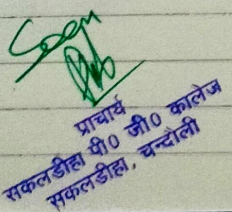 प्राचार्य
सकलडीहा पी0 जी0 कालेज
सकलडीहा, चन्दौली